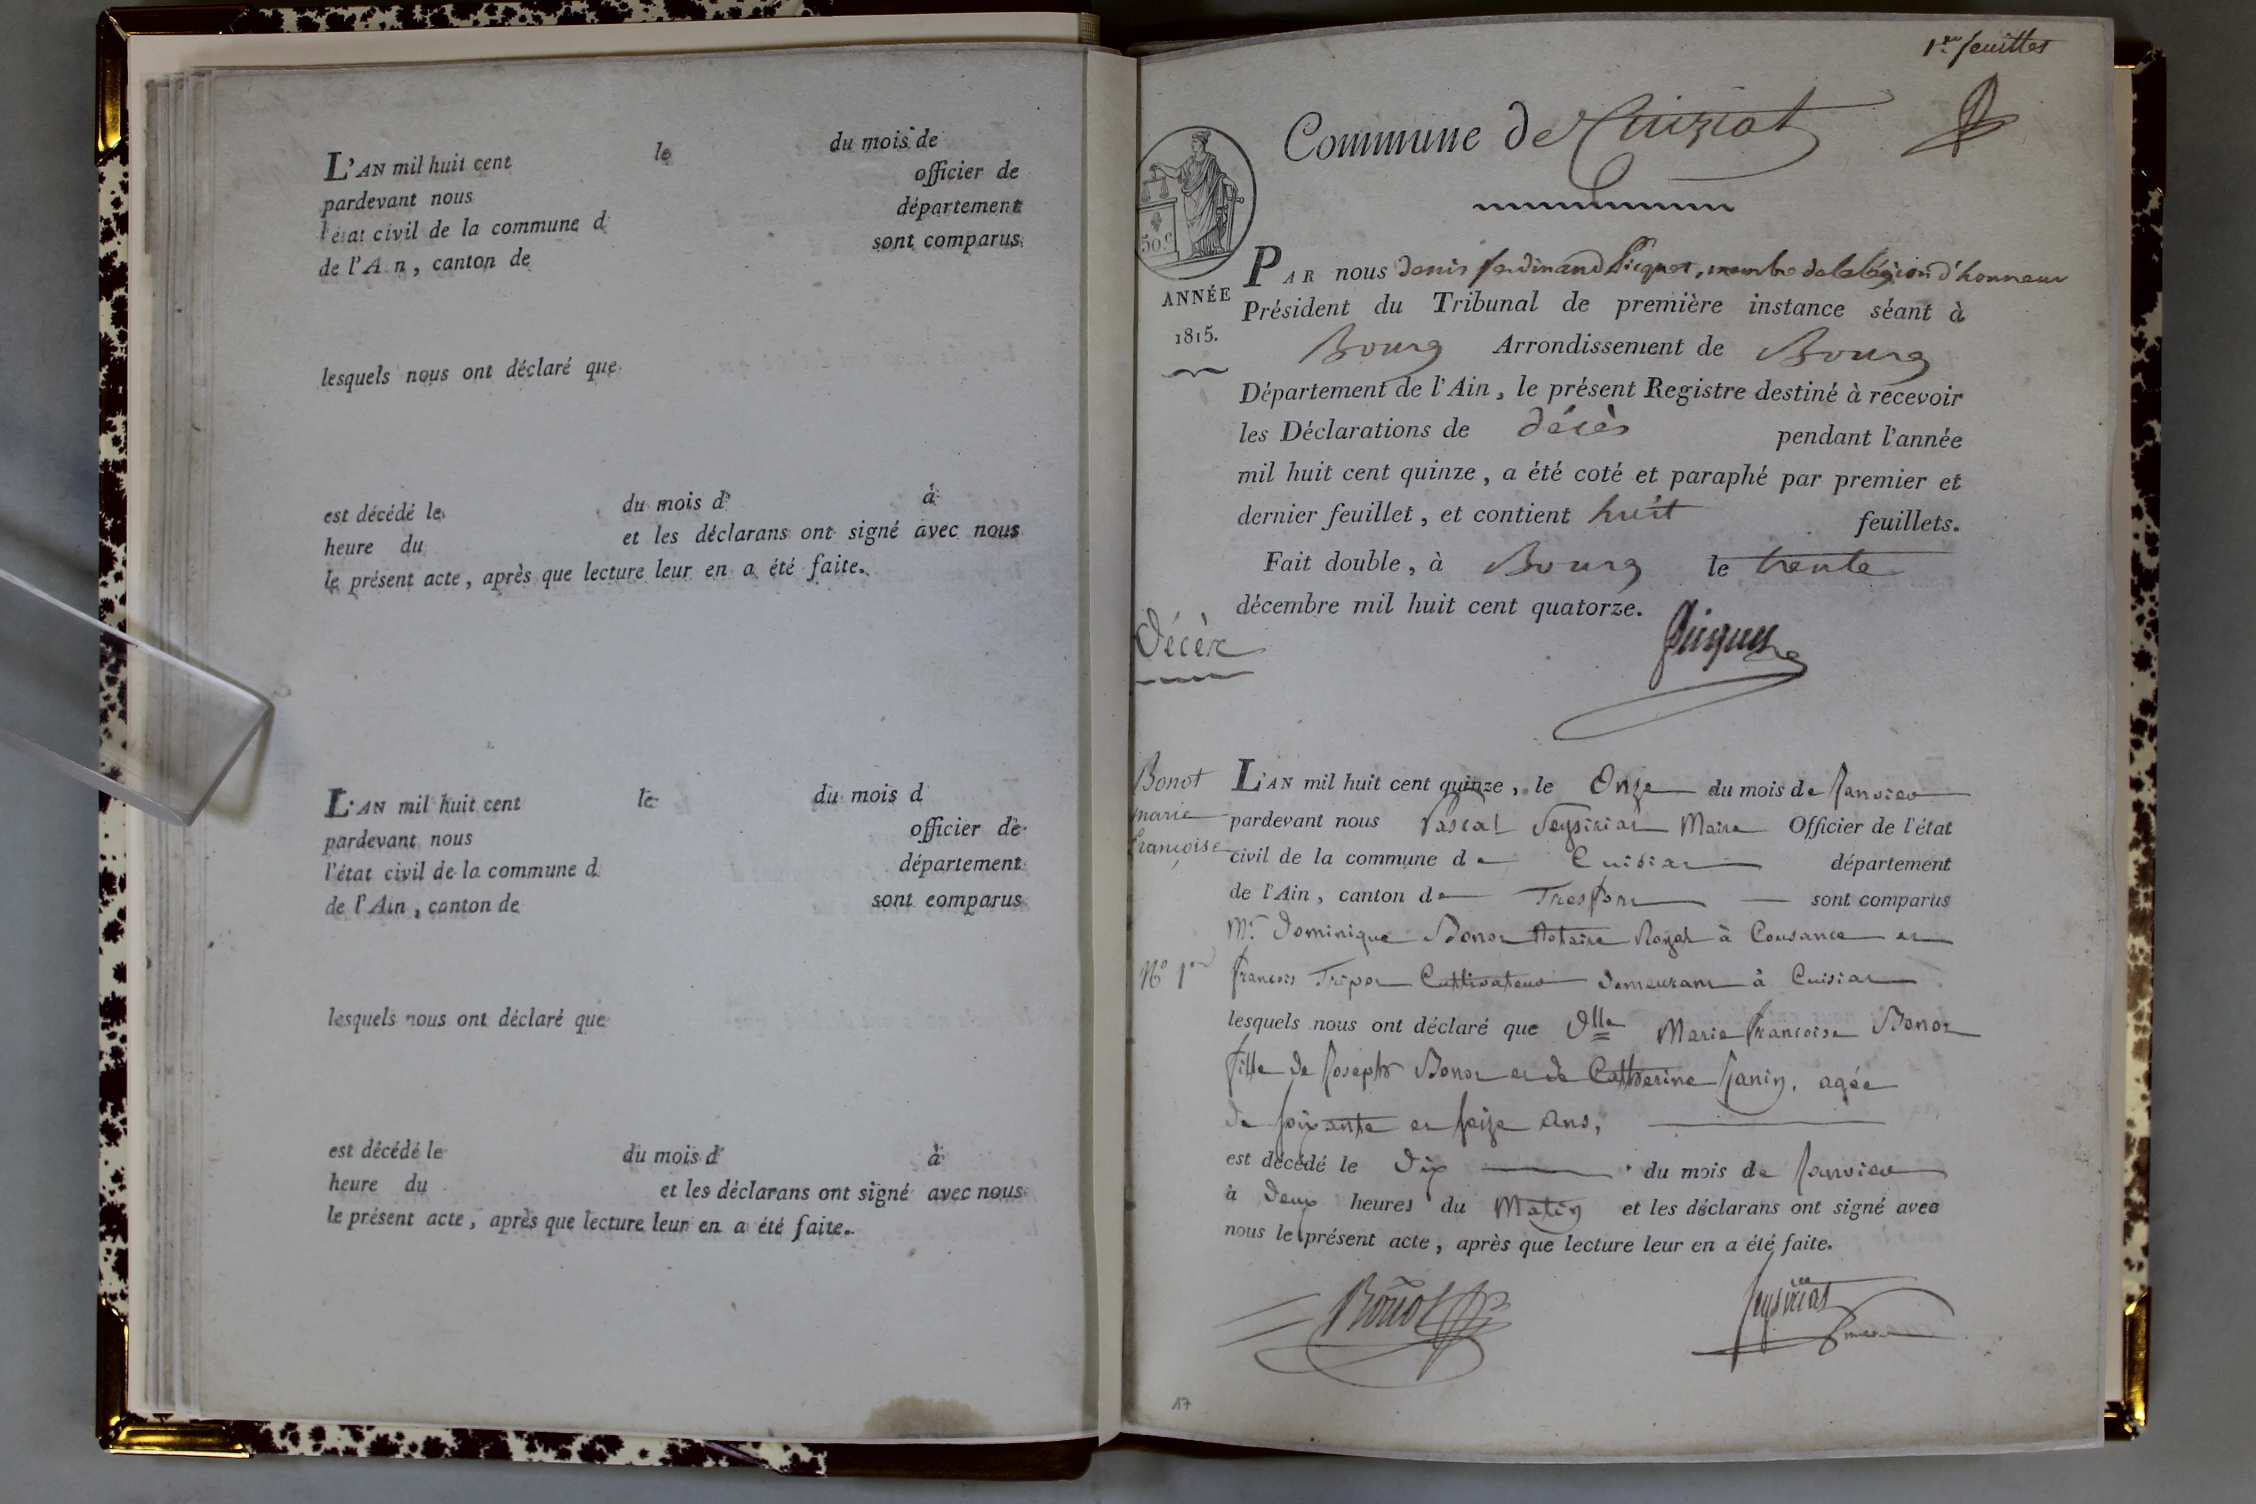 L'AN mil huit cent le du mois de
pardevant nous officier de
l'état civil de la commune d département
de l'Ain, canton de sont comparus
lesquels nous ont déclaré que
est décédé le du mois d à
heure du et les déclarans ont signé avec nous
le présent acte, après que lecture leur en a été faite.
L'AN mil huit cent le du mois d
pardevant nous officier de
l'état civil de la commune d département
de l'Ain, canton de sont comparus
lesquels nous ont déclaré que
est décédé le du mois d à
heure du et les déclarans ont signé avec nous
le présent acte, après que lecture leur en a été faite.
1er feuillet
Commune de Cuiziat
50 c
ANNÉE
1815.
PAR nous denis ferdinand Picquet, membre de la légion d'honneur
Président du Tribunal de première instance séant à
Bourg Arrondissement de Bourg
Département de l'Ain, le présent Registre destiné à recevoir
les Déclarations de décès pendant l'année
mil huit cent quinze, a été coté et paraphé par premier et
dernier feuillet, et contient huit feuillets.
Fait double, à Bourg le trente
décembre mil huit cent quatorze.
Picquet
Décès
Bonot
marie
françoise
N° 1er
L'AN mil huit cent quinze, le Onze du mois de Janvier
pardevant nous Pascal Seysiriat Maire Officier de l'état
civil de la commune de Cuisiat département
de l'Ain, canton de Treffort sont comparus
Mr. Dominique Bonot Notaire Royal à Cousance et
francois Tripoz Cultivateur demeurant à Cuisiat
lesquels nous ont déclaré que Dlle Marie francoise Bonot
fille de Joseph Bonot et de Catherine Janin, agée
de soixante et seize ans,
est décédé le Dix du mois de Janvier
à Deux heures du Matin et les déclarans ont signé avec
nous le présent acte, après que lecture leur en a été faite.
Bonot Seysiriat
maire
17